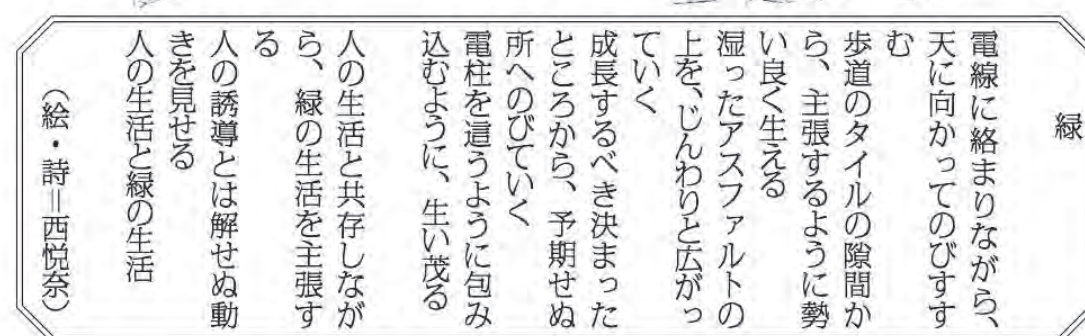 緑
電線に絡まりながら、
天に向かってのびすす
む
歩道のタイルの隙間か
ら、主張するように勢
い良く生える
湿ったアスファルトの
上を、じんわりと広がっ
ていく
成長するべき決まった
ところから、予期せぬ
所へのびていく
電柱を這うように包み
込むように、生い茂る
人の生活と共存しなが
ら、緑の生活を主張す
る
人の誘導とは解せぬ動
きを見せる
人の生活と緑の生活
（絵・詩＝西悦奈）